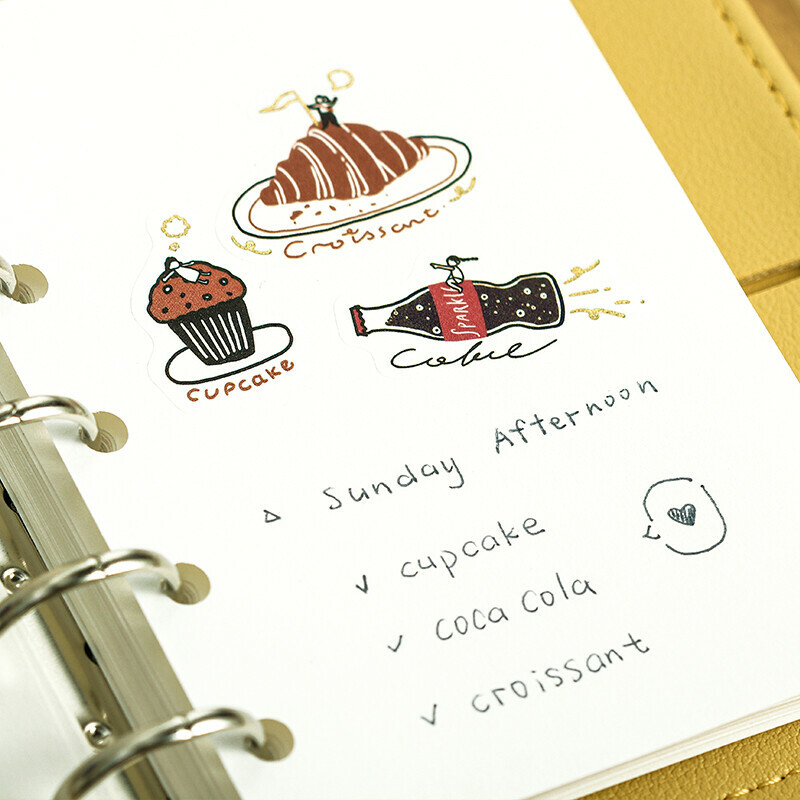 Croissant
CUPCAKE
SPARKL
Coke
Sunday Afternoon
cupcake
coca cola
croissant